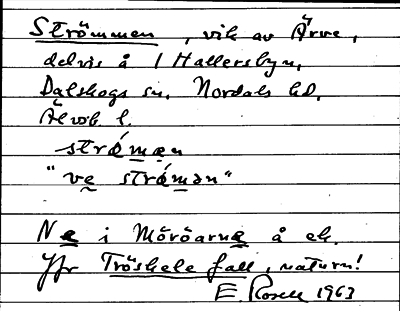 Strömmen, vik av Ärve,
delvis å 1 Hallersbyn,
Dalskogs sn, Nordals hd,
Älvsb. l.
strǿmæn
"ve strǿmən"
Ne i Möröarna å ek.
Jfr Tröskele fall, naturn!
E Rosell 1963